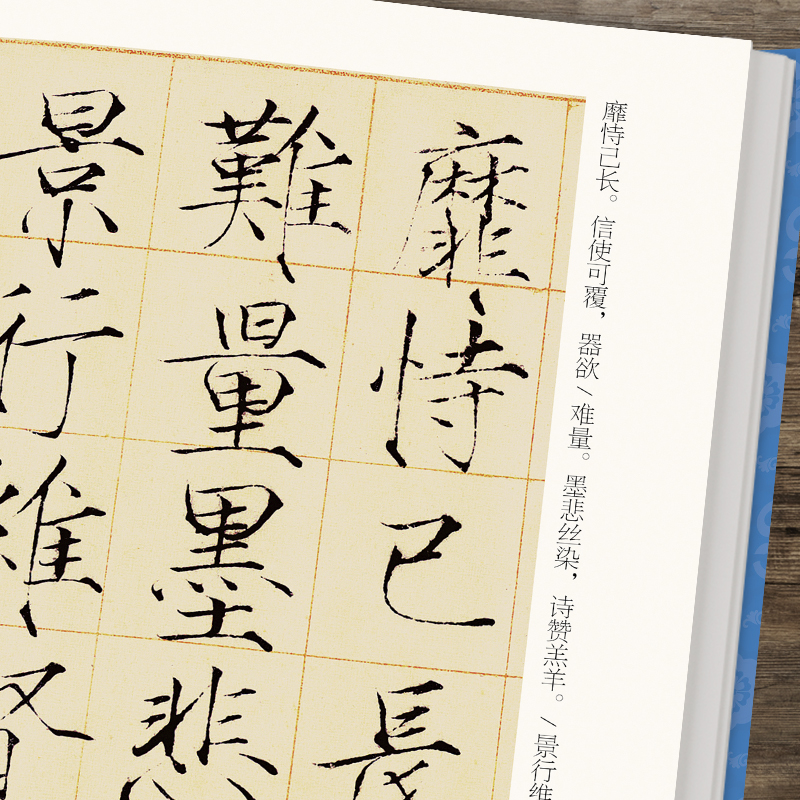 靡恃己长。信使可覆，器欲/难量。墨悲丝染，诗赞羔羊。/景行维
靡恃己長
難量墨悲
景行維賢